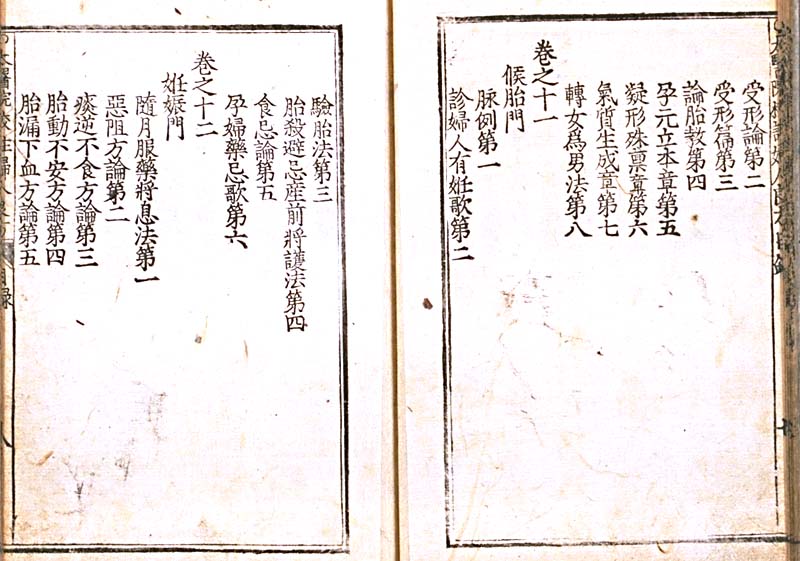 受形論第二
受形篇第三
論胎教第四
孕元立本章第五
凝形殊禀章第六
氣質生成章第七
轉女爲男法第八
卷之十一
候胎門
脉例第一
診婦人有姙歌第二
驗胎法第三
胎殺避忌産前將護法第四
食忌論第五
孕婦藥忌歌第六
卷之十二
姙娠門
隨月服藥將息法第一
惡阻方論第二
痰逆不食方論第三
胎動不安方論第四
胎漏下血方論第五